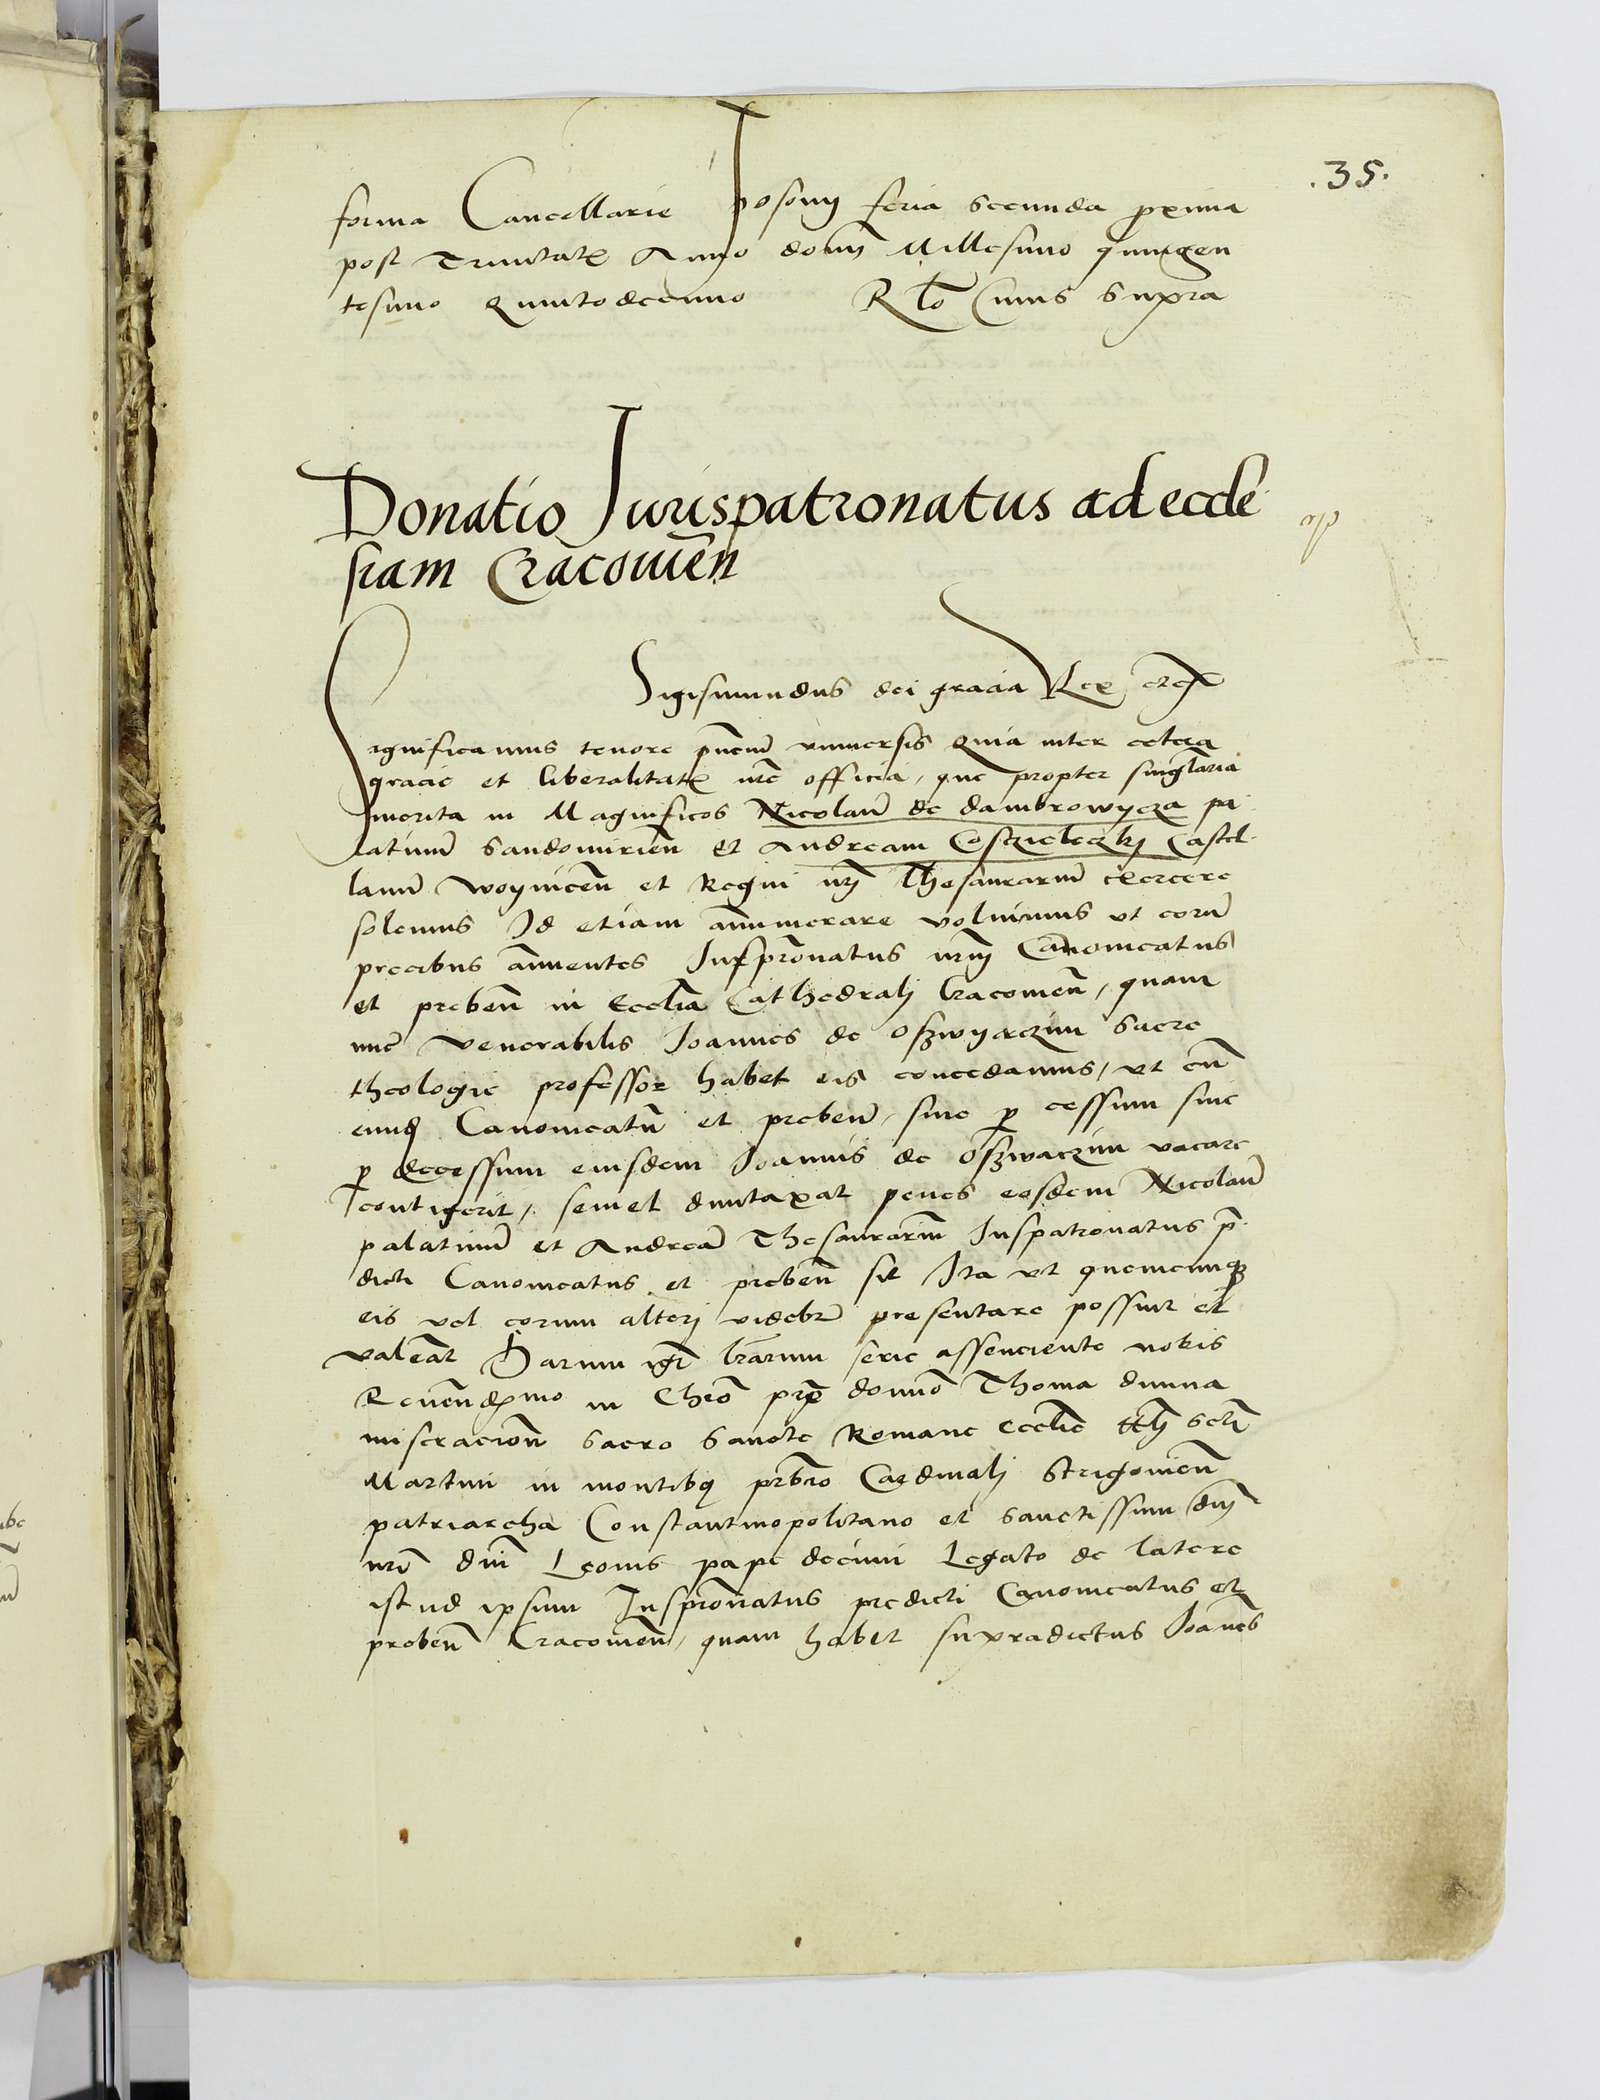 .35.
forma Cancellarie Posonij feria Secunda proxima
post Trinitatē Anno domij Millesimo quingen
tesimo Quintodecimo Rlō Cuius Supra
Donatio Jurispatronatus ad eccle
siam Cracouieñ
Sigismundus dei gracia Rex
Significamus tenore pñcium vniuersis Quia inter cetera
gracie et liberalitatē nrē officia, que propter singlaria
merita in Magnificos Nicolaū de dambrowycza pa
latinū Sandomirieñ et Andream Coszczieleczkj Castel
lanū woyniceñ et Regni nrj Thesaurariū exercere
solemus Id etiam annumerare voluimus vt eorū
precibus annuentes Juspr̄onatus nrm Canonicatus
et prebeñ in Ecclia Cathedralj Cracouieñ, quam
nūc Venerabilis Joannes de Oszwyaczim Sacre
theologie professor habet eis concedamus, vt cū
eumdē Canonicatū et prebeñ, siue p cessum siue
p decessum eiusdem Joannis de Oszwaczim vacare
contigerit, semel duntaxat penes eosdem Nicolaū
palatinū et Andreā Thesaurariū Juspatronatus p̄
dicti Canonicatus et prebeñ sit Ita vt quemcumqȝ
eis vel eorum alterj videbr̄ presentare possint et
valeāt Harum igr̄ lrārum serie assenciente nobis
Reuereñdmo in Chrō prē domiō Thoma diuina
miseracioñ Sacro Sancte Romane Ecclie ttlj Scti
Martini in montibq prbr̄o Cardinalj Strigonieñ
patriarcha Constantinopolitano et Sanctissimi dnj
nrī dnī Leonis pape decimi Legato de latere
istud ipsum Juspr̄onatus predicti Canonicatus et
prebeñ Cracouieñ, quam habet supradictus Joānes